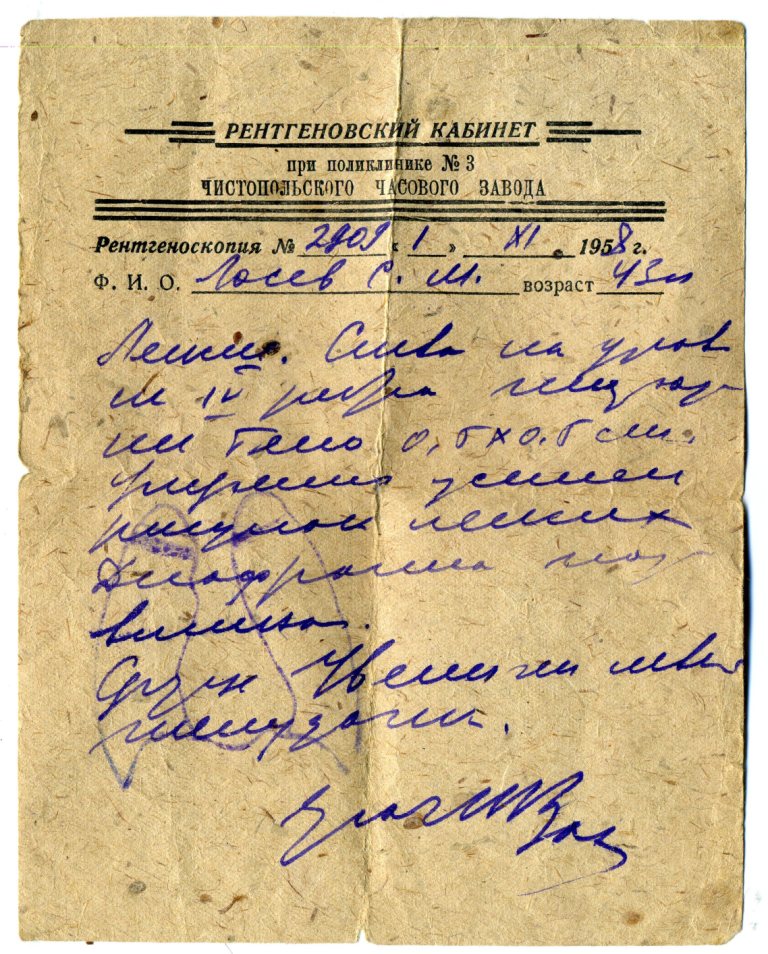 РЕНТГЕНОВСКИЙ КАБИНЕТ
при поликлинике № 3
ЧИСТОПОЛЬСКОГО ЧАСОВОГО ЗАВОДА
Рентгеноскопия № 2909 « 1 » XI 1958 г.
Ф. И. О. Лосев С. М. возраст 43 л
Легкие. Слева на уров
не IV ребра инород
ное тело 0,5х0.5 см.
усилен
рисунок легких
Диафрагма под
вижна.
Сердце Увеличен левый
желудочек.
Врач